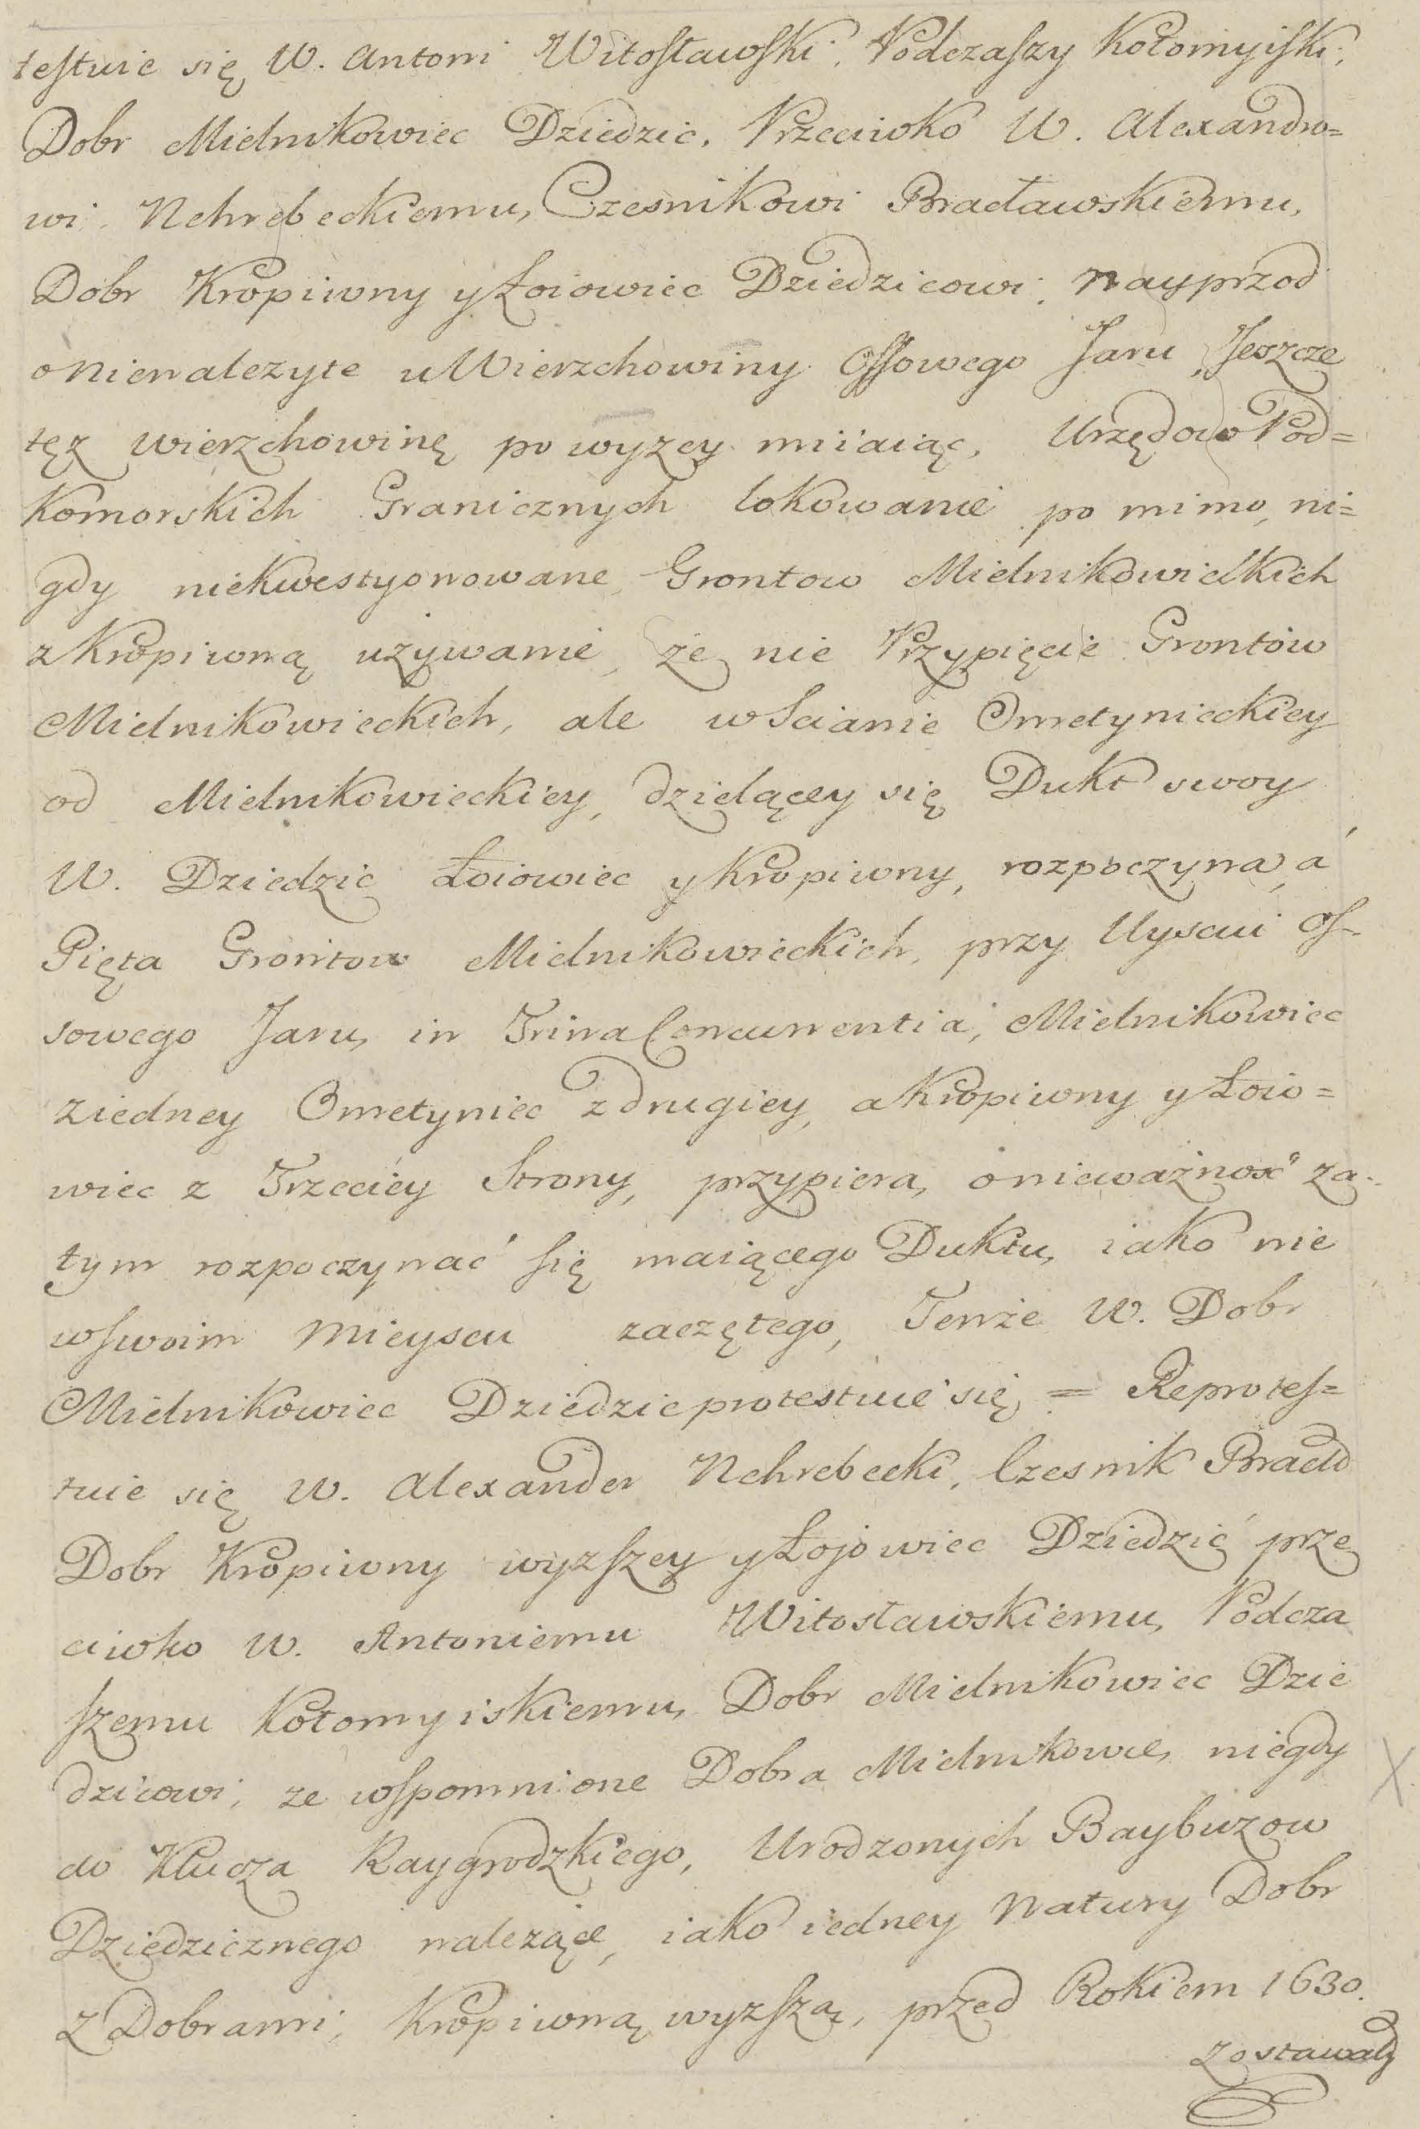 testuie się W. Antoni Witosławski, Podczaszy Kołomyiski,
Dobr Mielnikowiec Dziedzic, Przeciwko W. Alexandro=
wi Nehrebeckiemu, Czesnikowi Bracławskiemu,
Dobr Kropiwny y Łoiowiec Dziedzicowi, Nayprzod
o Nienależyte u Wierzchowiny Ossowego Jaru, Jeszcze
tęż wierzchowinę powyzey miiaiąc, Urzędow Pod=
komorskich Granicznych lokowanie po mimo, ni=
gdy niekwestyonowane Grontow Mielnikowieckich
z Kropiwną używanie, że nie Przypięcie Grontów
Mielnikowieckich, ale w Scianie Ometynieckiey
od Mielnikowieckiey, dzielącey się Dukt swoy
W. Dziedzic Łoiowiec y Kropiwny, rozpoczyna, á
Pięta Grontow Mielnikowieckich, przy Uyściu Os=
sowego Jaru, in Trina Concurrentia, Mielnikowiec
z iedney Ometyniec z drugiey, a Kropiwny y Łoio=
wiec z Trzeciey Strony, przypiera, o nieważność za=
tym rozpoczynać się maiącego Duktu, iako nie
w swoim Mieyscu zaczętego, Tenże W. Dobr
Mielnikowiec Dziedzic protestuie się = Reprotes=
tuie się W. Alexander Nehrebecki, Czesnik Bracld
Dobr Kropiwny wyzszey y Łojowiec Dziedzić prze
ciwko W. Antoniemu Witosławskiemu, Podcza
szemu Kołomyiskiemu, Dobr Mielnikowiec Dzie
dzicowi, ze wspomnione Dobra Mielnikowce, niegdy
do Klucza Raygrodzkiego, Urodzonych Baybuzow
Dziedzicznego należące, iako iedney Natury Dobr
z Dobrami, Kropiwną wyzszą, przed Rokiem 1630.
zostawały